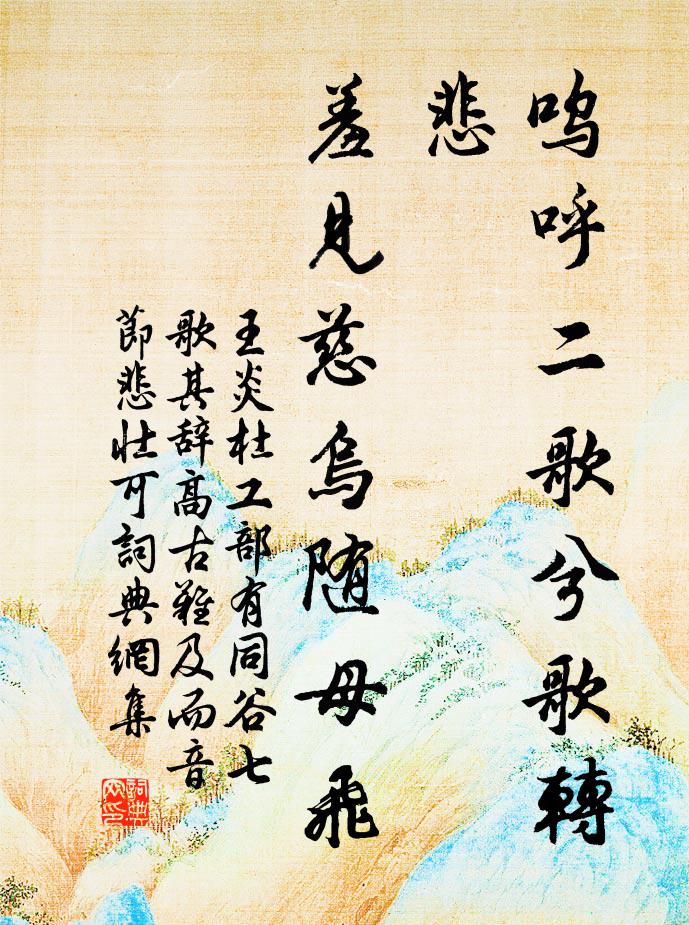 嗚呼二歌兮歌轉
悲
羞見慈烏随母飛
王炎杜工部有同谷七
歌其辞高古難及而音
節悲壯可詞典網集
詞典
网印